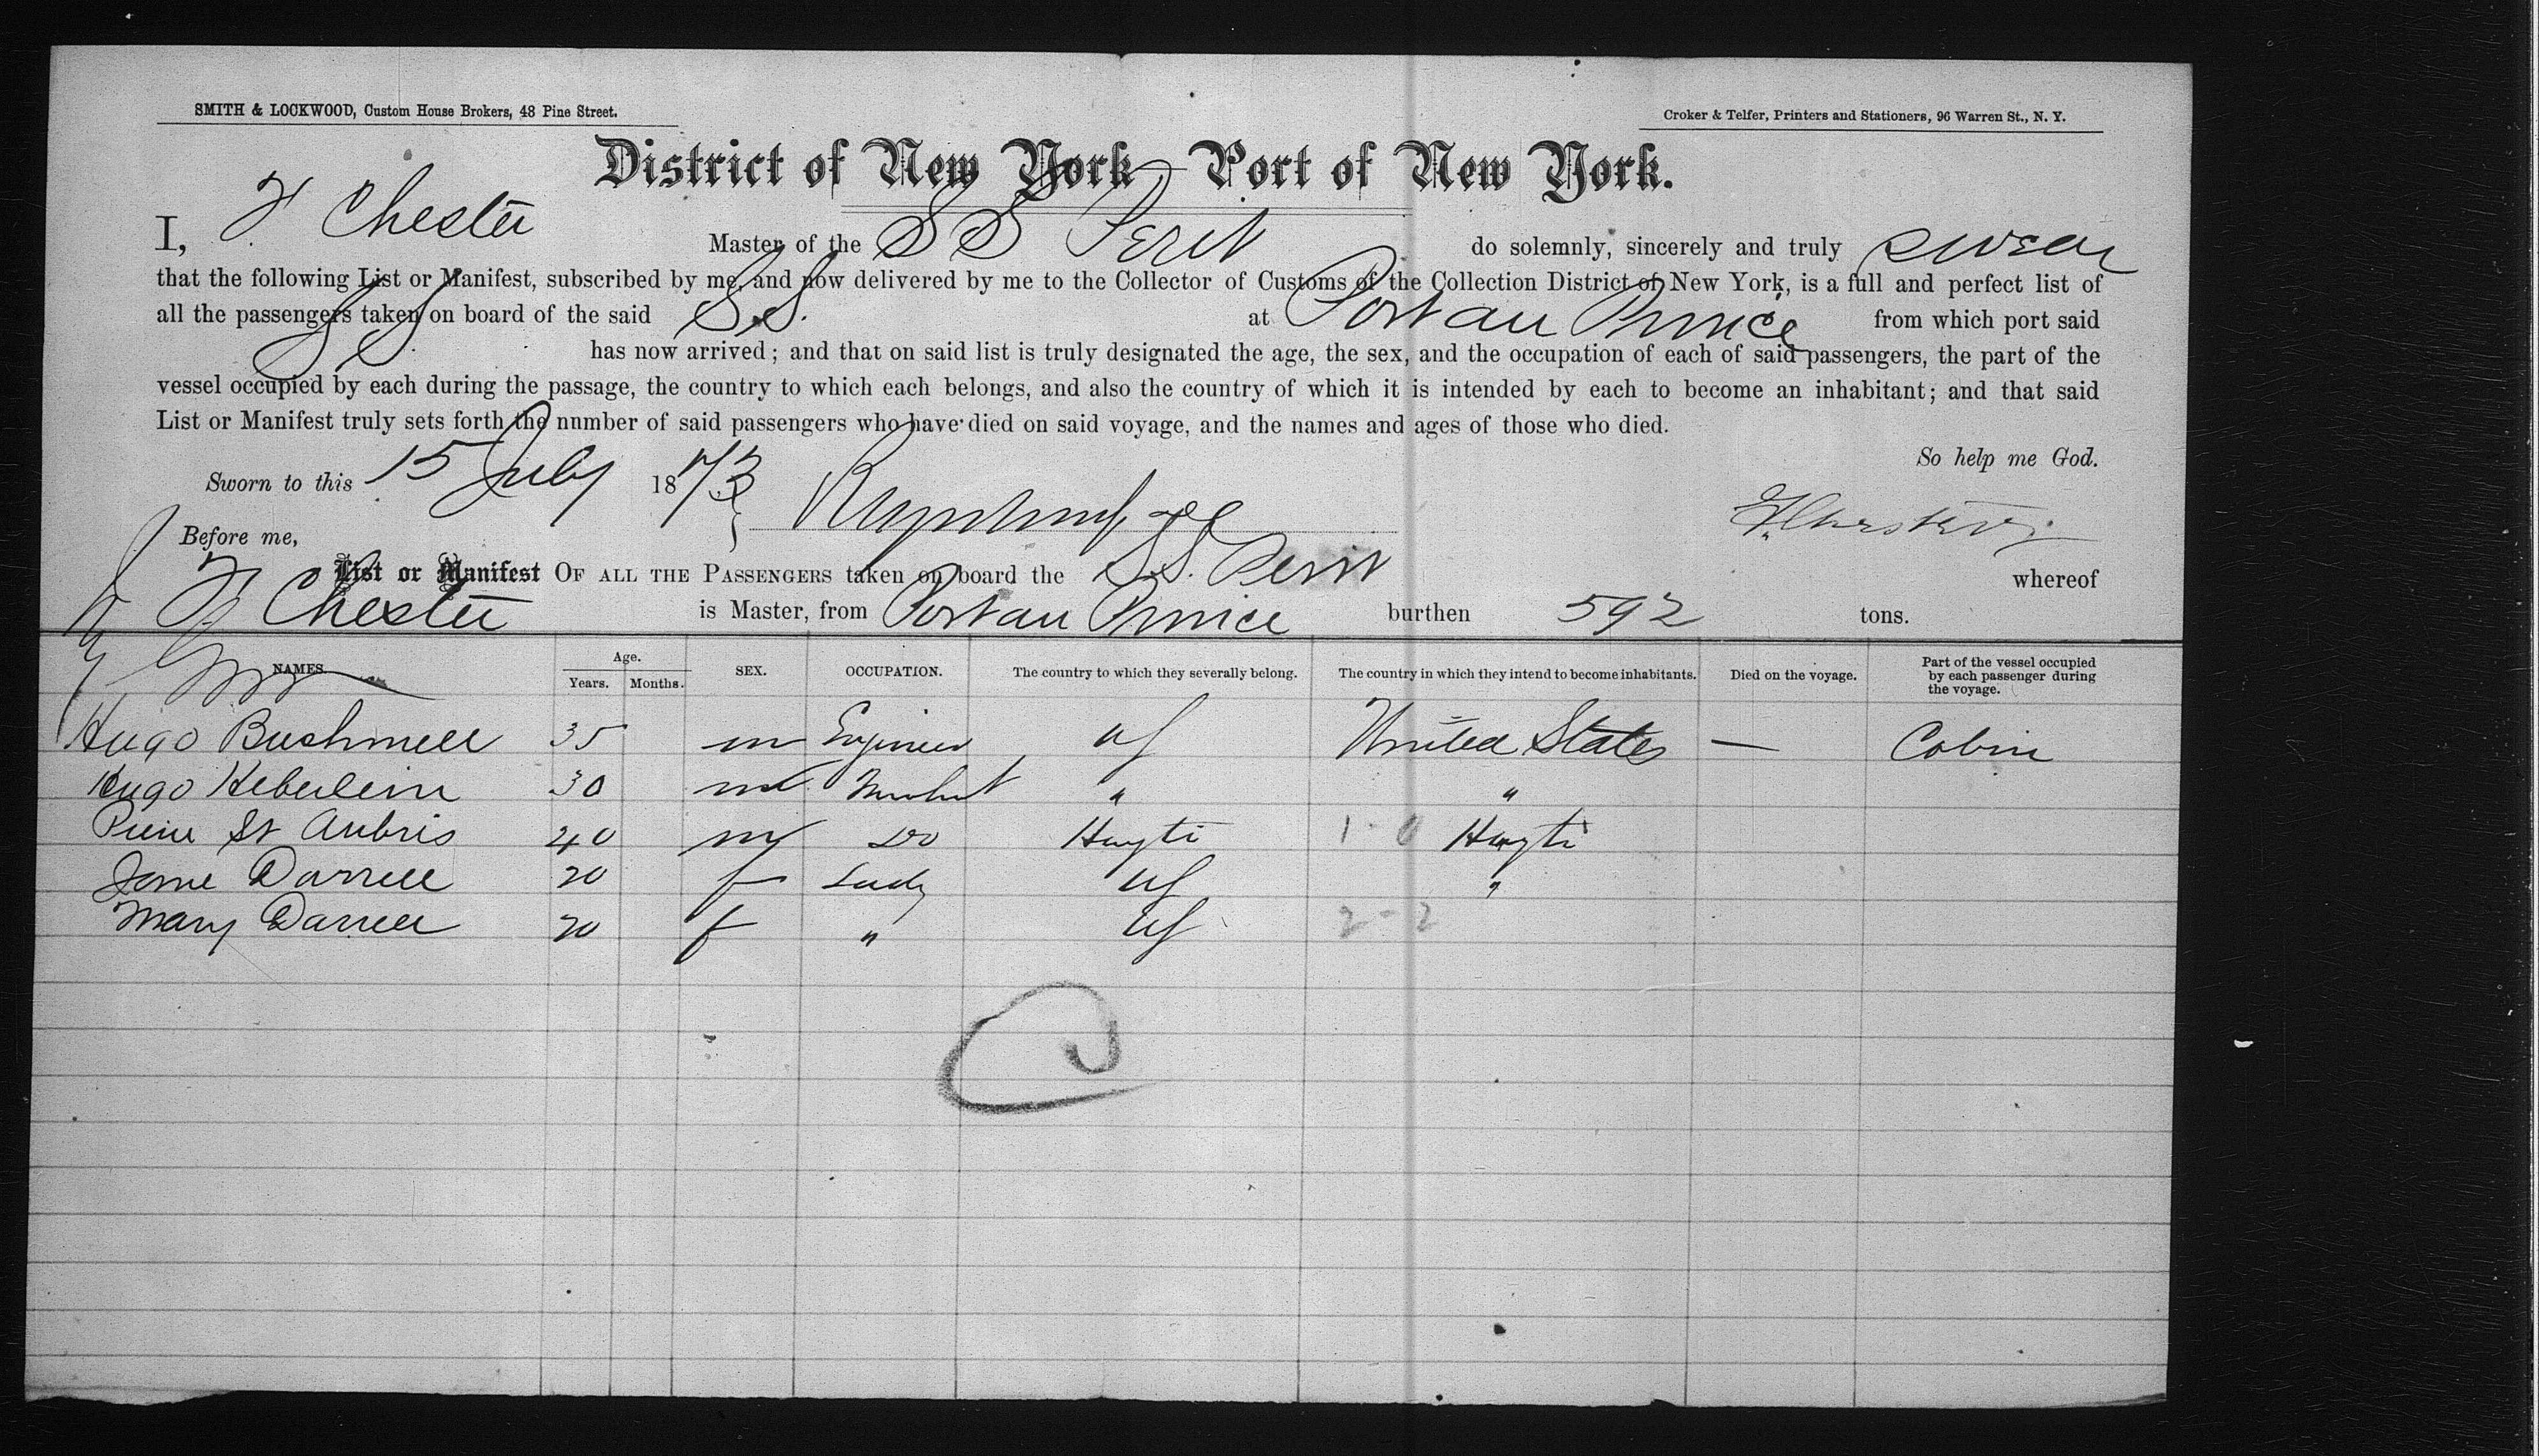 SMITH & LOCKWOOD, Custom House Brokers, 43 Pine Street.
Croker & Telfer, Printers and Stationers, 96 Warren St., N. Y.
District of New York Port of New York.
I, F Chester Master of the SS Perit do solemnly, sincerely and truly swear
that the following List or Manifest, subscribed by me, and now delivered by me to the Collector of Customs of the Collection District of New York, is a full and perfect list of
all the passengers taken on board of the said S.S. at Port au Prince from which port said
SS has now arrived; and that on said list is truly designated the age, the sex, and the occupation of each of said passengers, the part of the
vessel occupied by each during the passage, the country to which each belongs, and also the country of which it is intended by each to become an inhabitant; and that said
List or Manifest truly sets forth the nnmber of said passengers who have died on said voyage, and the names and ages of those who died.
So help me God.
Sworn to this 15 July 1873
F. Chester
Before me,
List or Manifest OF ALL THE PASSENGERS taken on board the S.S. Perit whereof
F Chester is Master, from Port au Prince burthen 592 tons.
NAMES. Age. Years. Months. SEX. OCCUPATION. The country to which they severally belong. The country in which they intend to become inhabitants. Died on the voyage. Part of the vessel occupied by each passenger during the voyage.
Hugo Bushmell 35 m Engineer US United States — Cabin
Hugo Heberlein 30 m " "
St Aubris 40 m Do Hayti 1-0 Hayti
Jane Darrell 20 f Lady US "
Mary Darrell 20 f " US 2-2